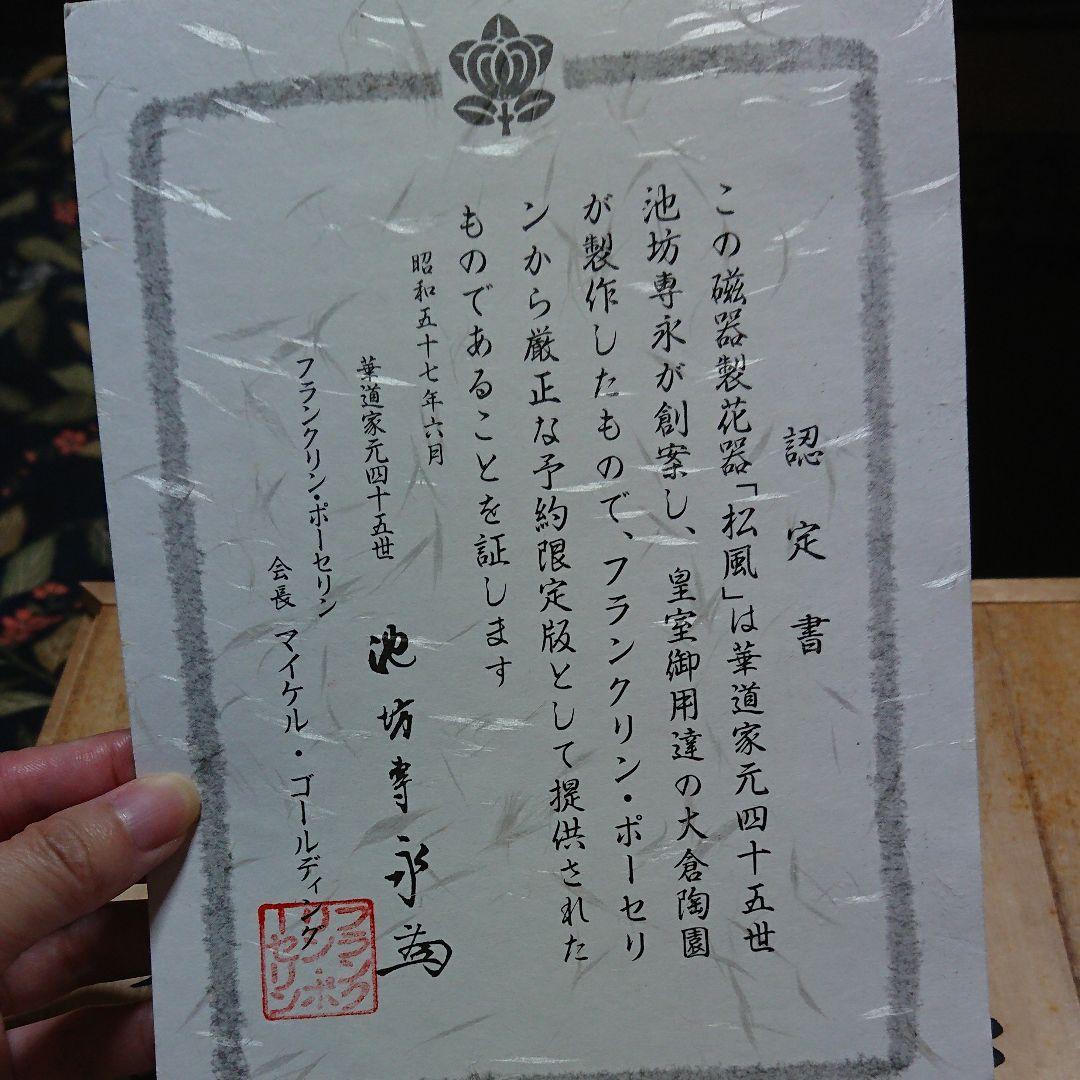 認定書
この磁器製花器「松風」は華道家元四十五世
池坊専永が創案し、皇室御用達の大倉陶園
が製作したもので、フランクリン・ポーセリ
ンから厳正な予約限定版として提供された
ものであることを証します
昭和五十七年六月
華道家元四十五世
池坊専永
フランクリン・ポーセリン
会長 マイケル・ゴールディング
フランク
リン・ポ
ーセリン